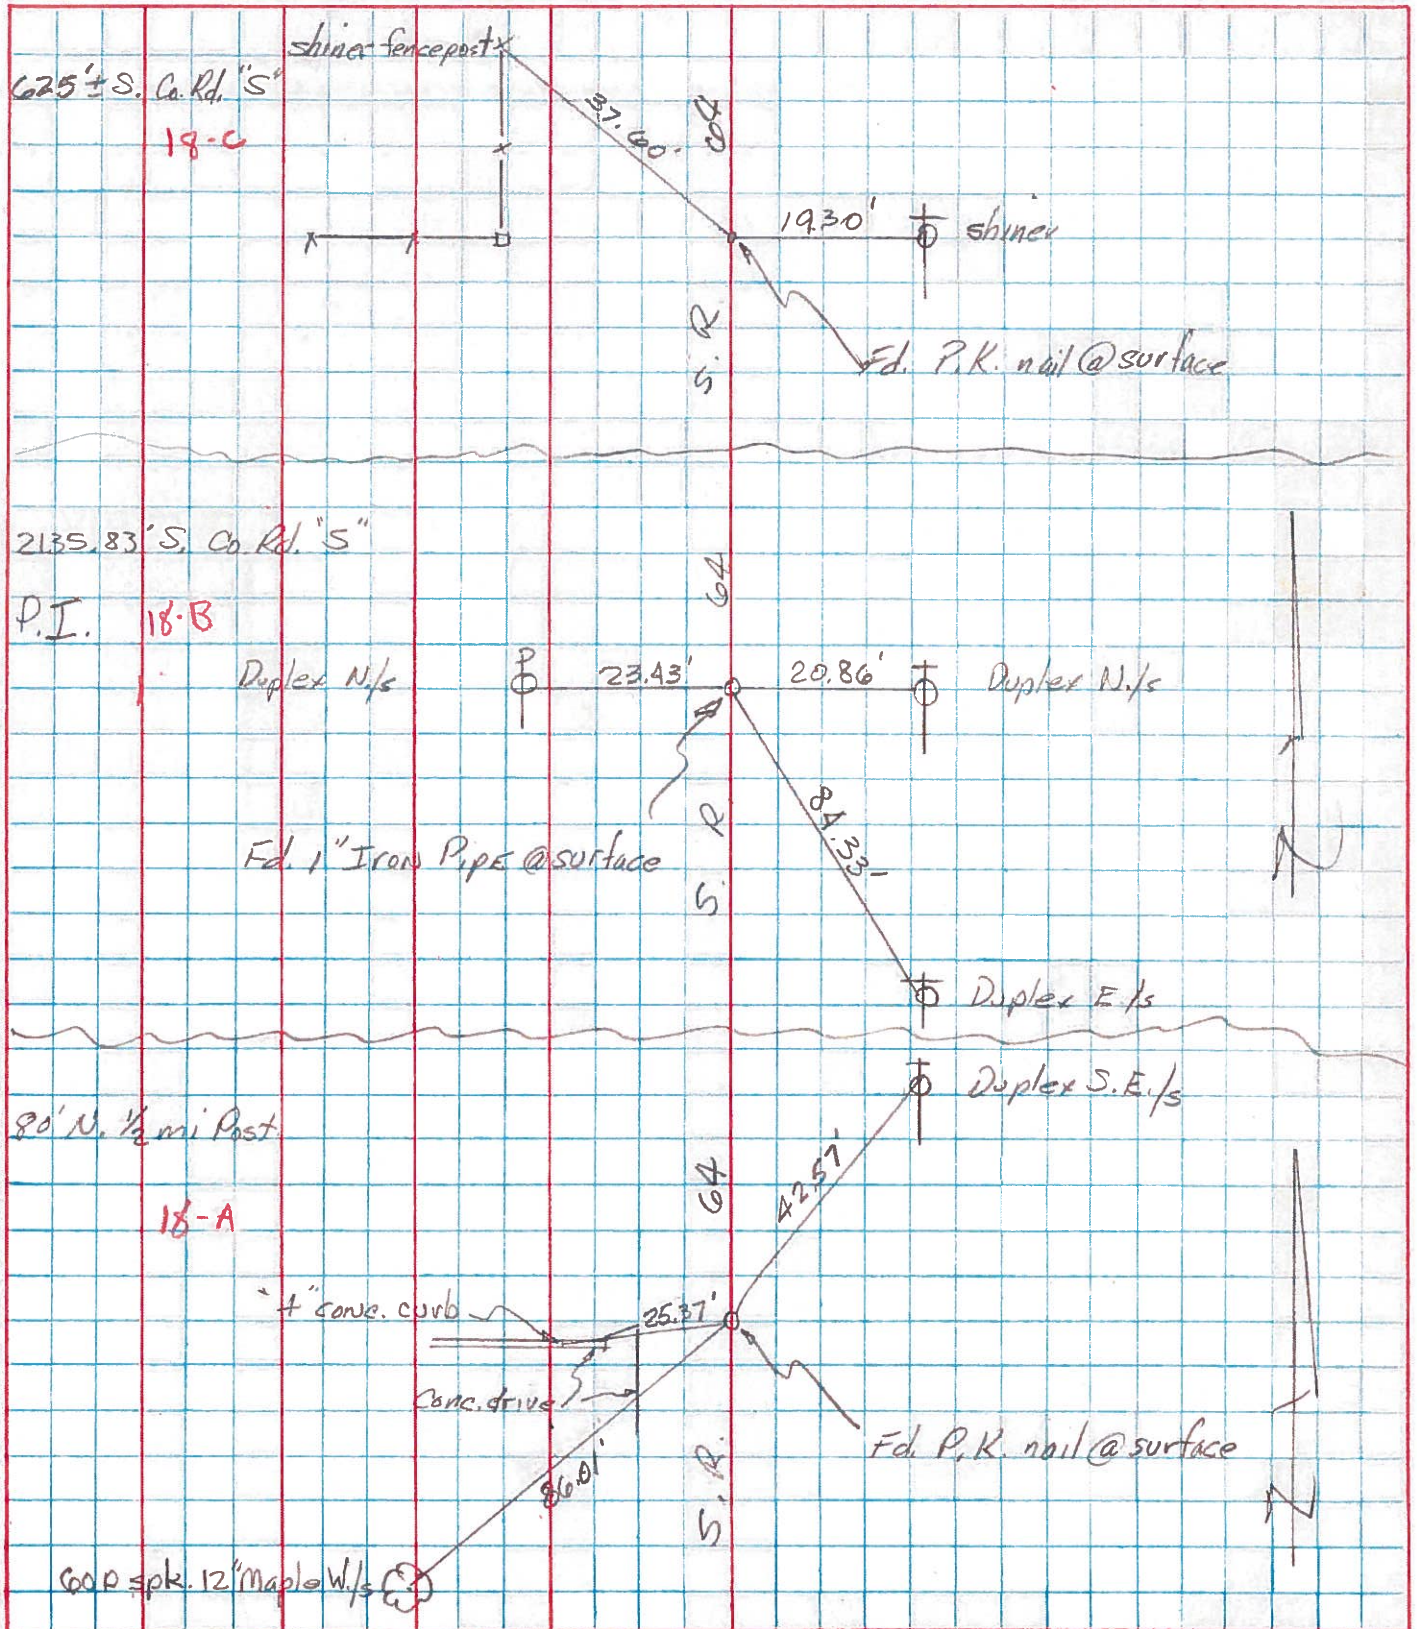 shiner fencepost
625'± S. Co. Rd. "S"
18-C
37.60'
S. R. 64
19.30'
shiner
Fd. P.K. nail @ surface
2135.83' S. Co. Rd. "S"
P.I.
18-B
Duplex N./s
P
23.43'
20.86'
Duplex N./s
S. R. 64
84.33'
Fd. 1" Iron Pipe @ surface
N
Duplex E./s
Duplex S.E./s
80' N. 1/2 mi Post
18-A
S. R. 64
42.57'
"+" conc. curb
25.37'
Conc. drive
Fd. P.K. nail @ surface
86.01'
N
60D spk. 12" Maple W./s